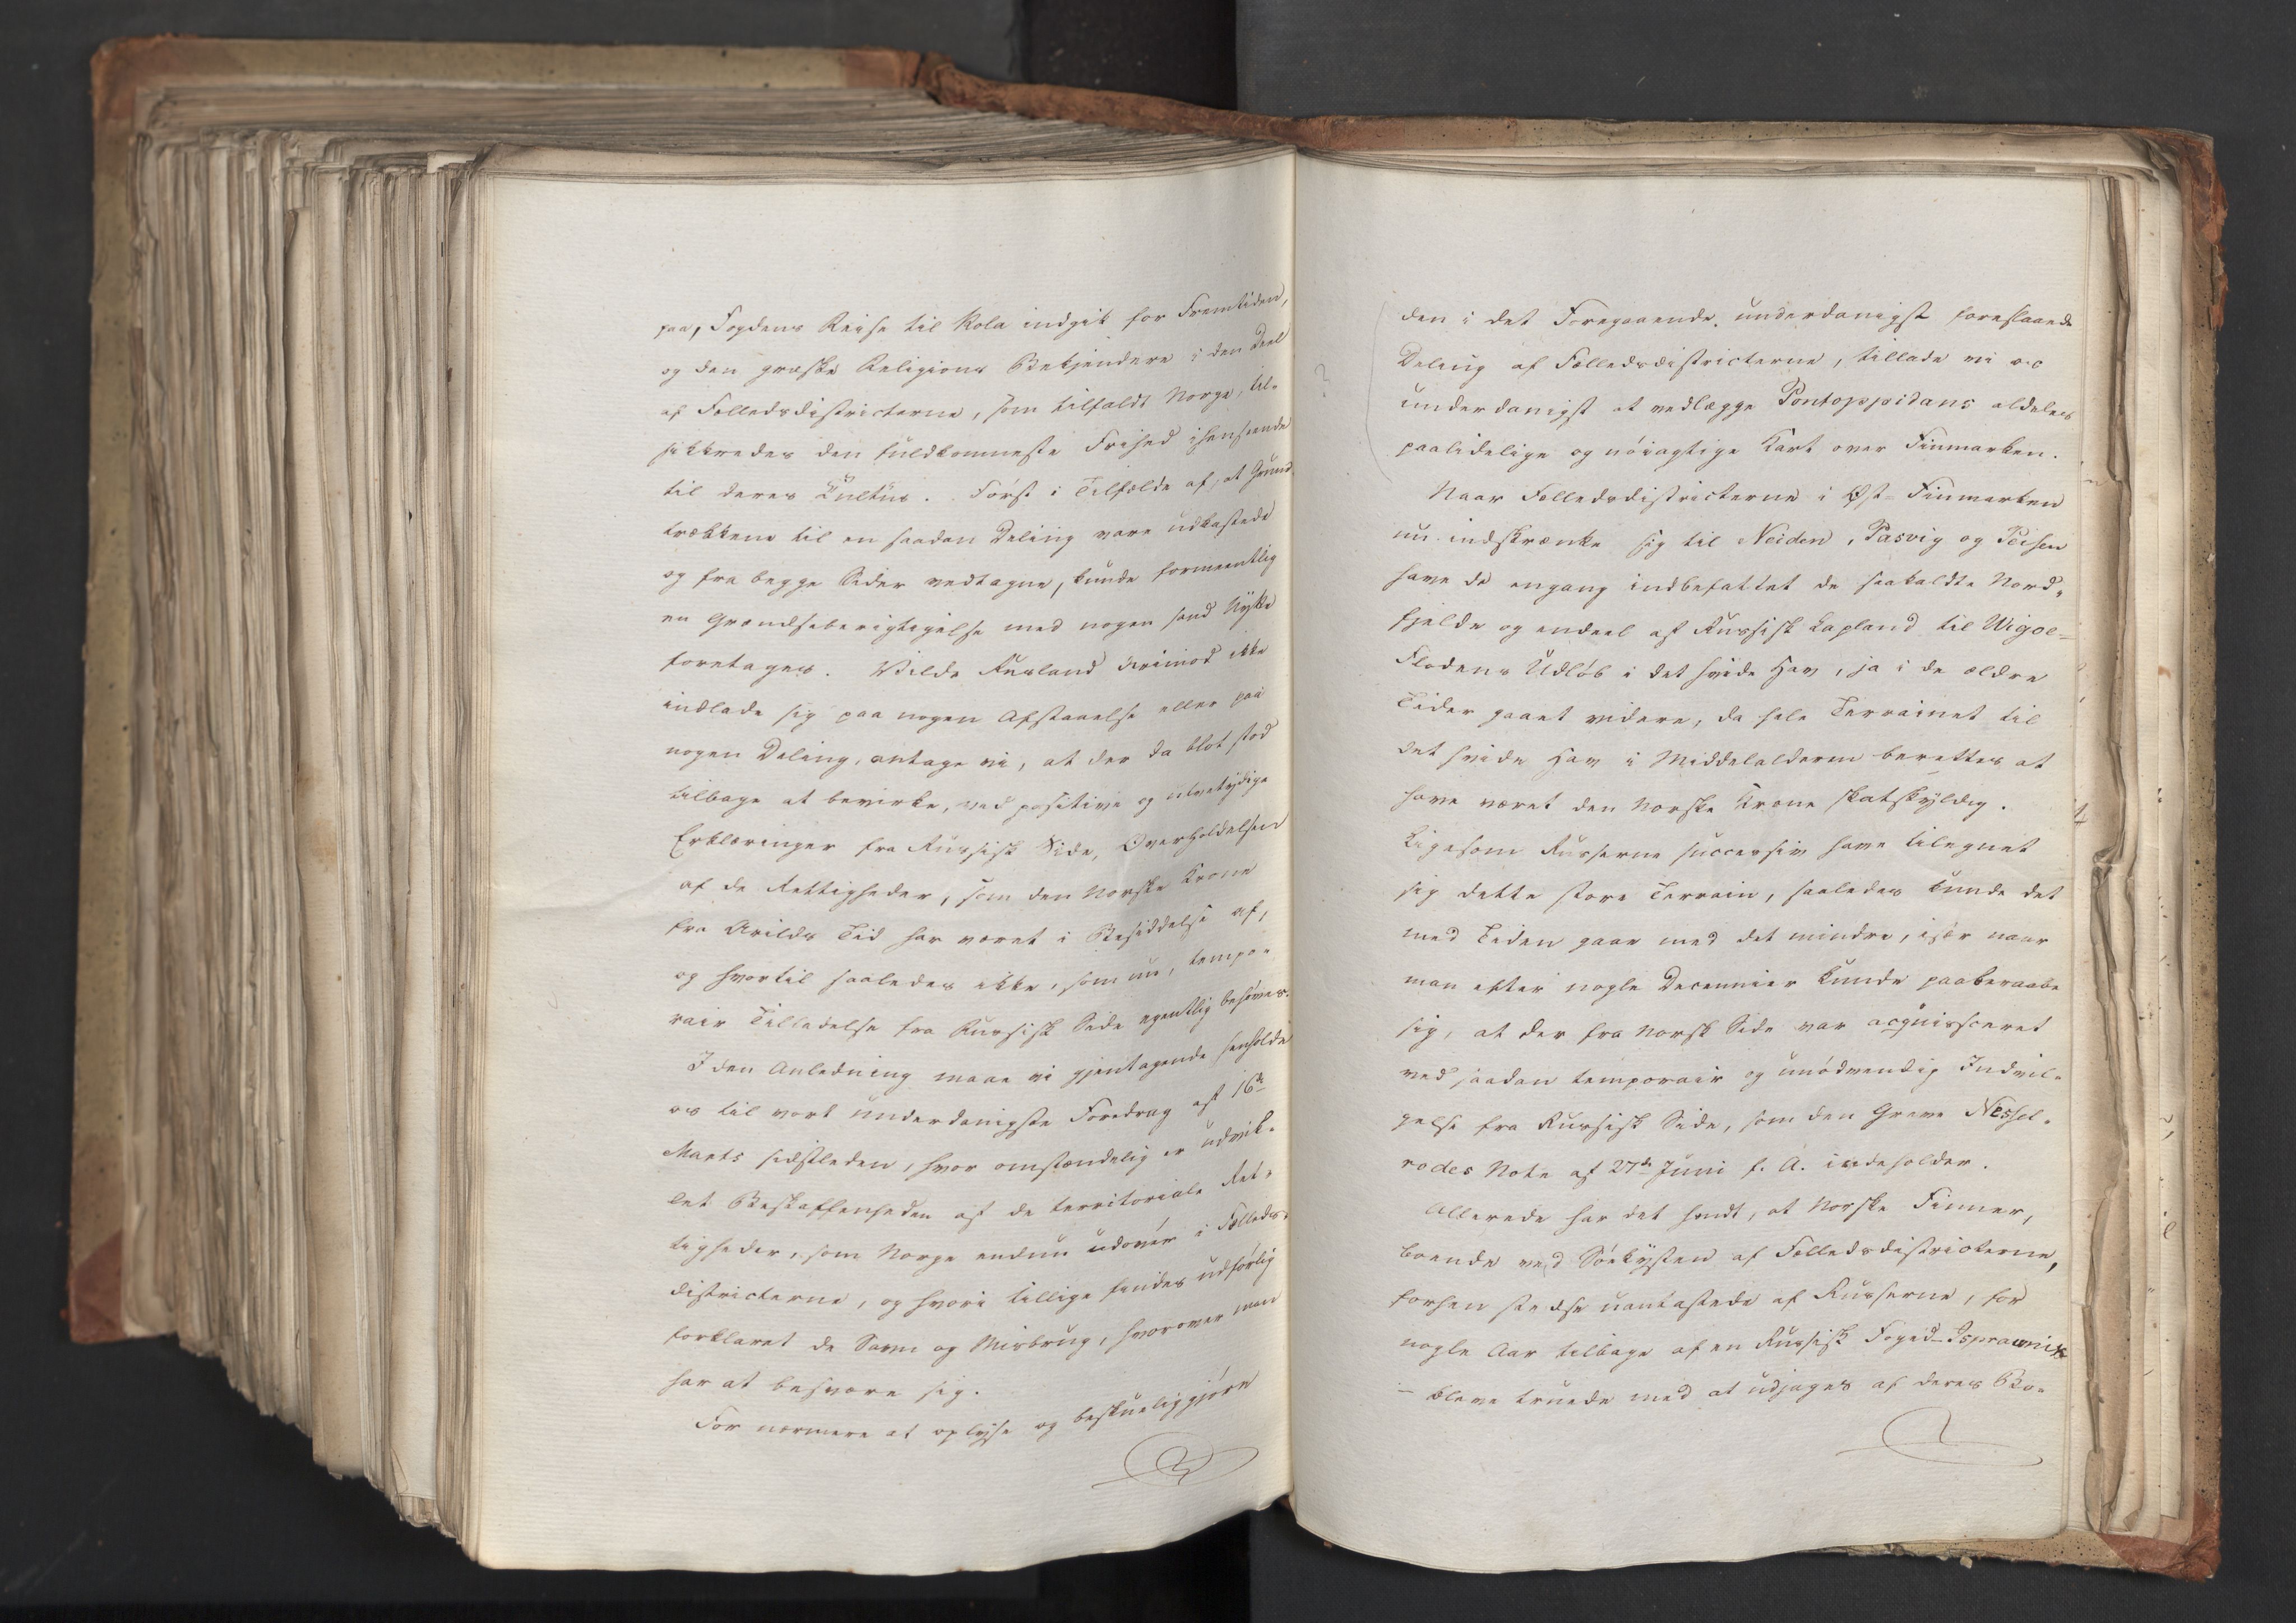 paa, Fogdens Reise til Kola indgik for Fremtiden,
og den græske Religions Bekjendere i den Deel
af Fælledsdistricterne, som tilfaldt Norge, til-
sikkredes den fuldkomneste Frihed ihenseende
til deres Kultus. Først i Tilfælde af, at Grund-
trækkene til en saadan Deling vare udkastede
og fra begge Sider vedtagne, kunde formeentlig
en Grændseberigtigelse med nogen sand Nytte
foretages. Vilde Rusland derimod ikke
indlade sig paa nogen Afstaaelse eller paa
nogen Deling, antage vi, at der da blot stod
tilbage at bevirke, ved positive og utvetydige
Erklæringer fra Russisk Side, Overholdelsen
af de Rettigheder, som den Norske Krone
fra Arilds Tid har været i Besiddelse af,
og hvortil saaledes ikke, som nu, tempo-
rair Tilladelse fra Russisk Side egentlig behøves.
I den Anledning maae vi gjentagende henholde
os til vort underdanigste Foredrag af 16de
Marts sidstleden, hvor omstændelig er udvik-
let Beskaffenheden af de territoriale Ret-
tigheder, som Norge endnu udøver i Fælleds-
districterne, og hvori tillige findes udførlig
forklaret de Savn og Misbrug, hvorover man
har at besvære sig.
For nærmere at oplyse og beskueliggjøre
den i det Foregaaende underdanigst foreslaaede
Deling af Fælledsdistricterne, tillade vi os
underdanigst at vedlægge Pontoppidans aldeles
paalidelige og nøiagtige Kart over Finmarken.
Naar Fælledsdistricterne i Øst-Finmarken
nu indskrænke sig til Neiden, Pasvig og Peisen
have de engang indbefattet de saakaldte Nord-
fjelde og endeel af Russisk Lapland til Wigoe-
Flodens Udløb i det hvide Hav, ja i de ældre
Tider gaaet videre, da hele Terrainet til
det hvide Hav i Middelalderen berettes at
have været den Norske Krone skatskyldig.
Ligesom Russerne successiv have tilegnet
sig dette store Terrain, saaledes kunde det
med Tiden gaae med det mindre, især naar
man efter nogle Decennier kunde paaberaabe
sig, at der fra Norsk Side var acquissceret
ved saadan temporair og unødvendig Indvil-
gelse fra Russisk Side, som den Greve Nessel-
rodes Note af 27de Juni f. A. indeholder.
Allerede har det hendt, at Norske Finner,
boende ved Søekysten af Fælledsdistricterne,
forhen stedse uantastede af Russerne, for
nogle Aar tilbage af en Russisk Foged-Isprawnik
– bleve truede med at udjages af deres Bo-